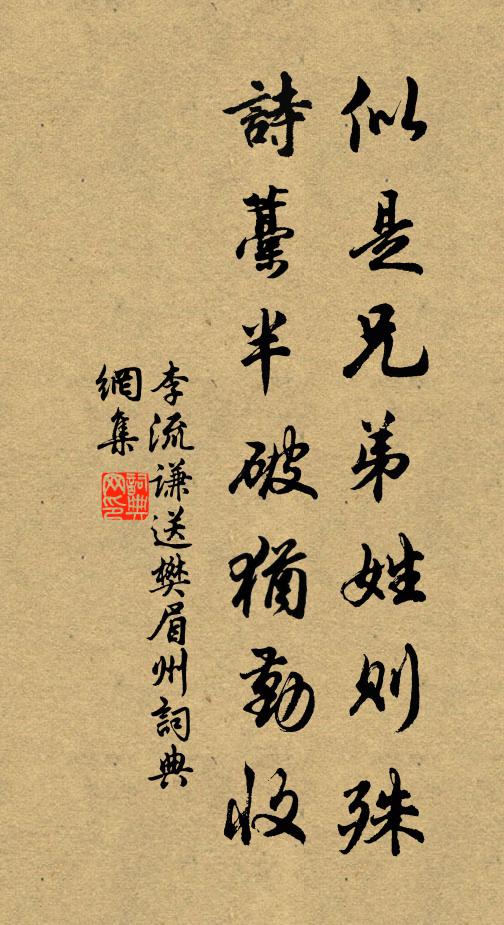 似是兄弟姓則殊
詩藁半破猶勤收
李流謙送樊眉州詞典
網集
詞典
網印